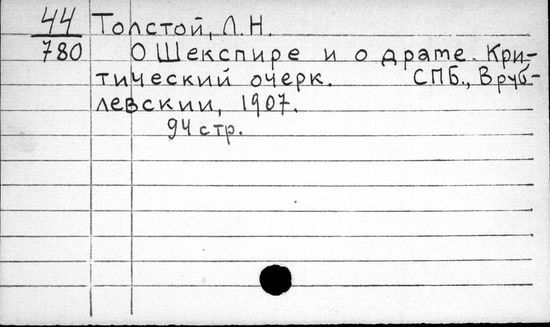 44 Толстой, Л.Н.
780 О Шекспире и о драме. Кри-
тический очерк. СПБ., Вруб-
левский, 1907.
94 стр.